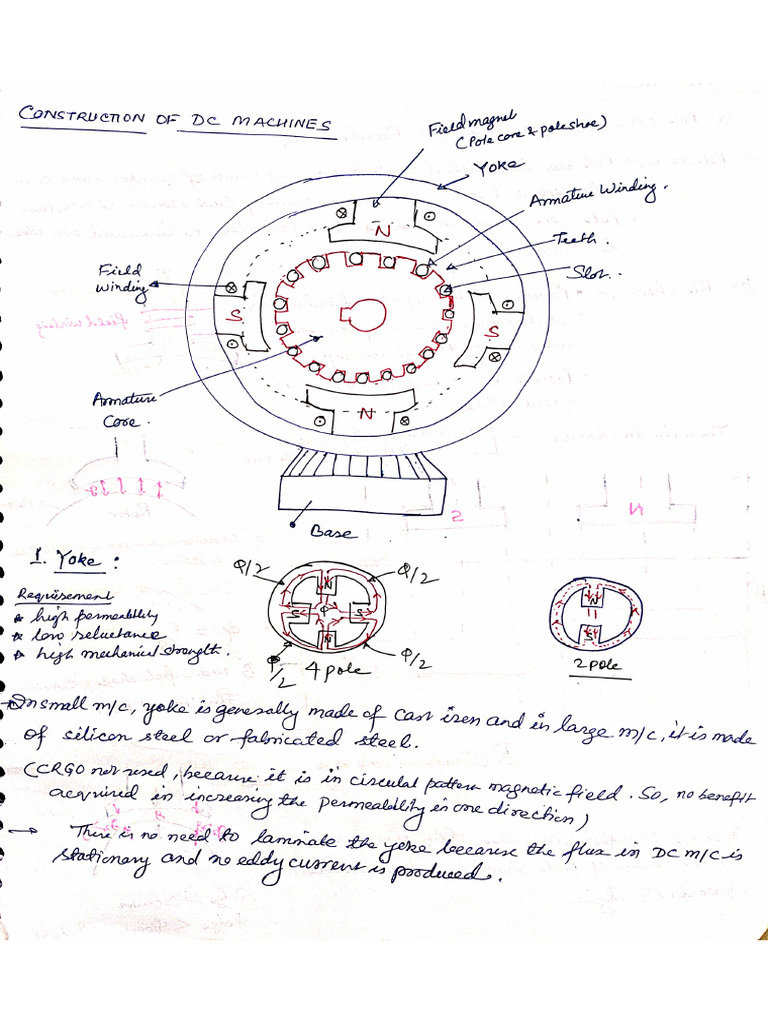 CONSTRUCTION OF DC MACHINES
Field magnet
(Pole core & pole shoe)
Yoke
Armature Winding.
Teeth.
Slot..
N
Field
winding
S
S
Armature
Core.
N
Base
1. Yoke :
Requirement
* high permeability
* low reluctance
* high mechanical strength.
φ/2
φ/2
N
S
φ
S
N
φ/2
φ/2
4 pole
N
S
2 pole
→ In small m/c, yoke is generally made of cast iron and in large m/c, it is made
of silicon steel or fabricated steel.
(CRGO not used, because it is in circular pattern magnetic field. So, no benefit
acquired in increasing the permeability in one direction)
→ There is no need to laminate the yoke because the flux in DC m/c is
stationary and no eddy current is produced.